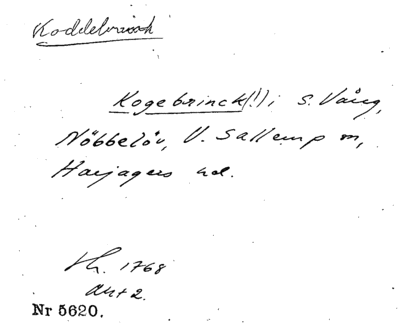 Koddelbrinck
Kogebrinck(!) i S. Vång,
Nöbbelöv, V. Sallerup m,
Harjagers hd.
Lh. 1768
akt 2.
Nr 5620.